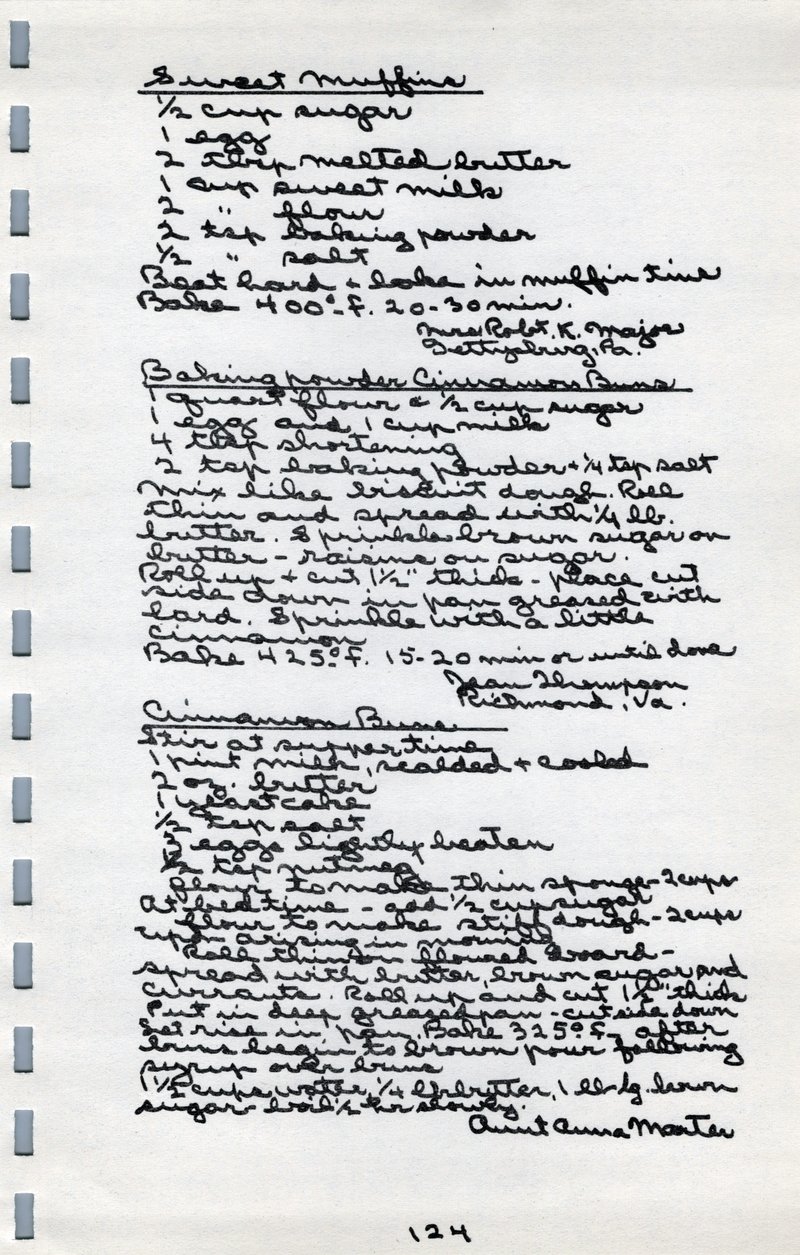 Sweet Muffins
1/2 cup sugar
1 egg
2 tbsp melted butter
1 cup sweet milk
2 " flour
2 tsp baking powder
1/2 " salt
Beat hard + bake in muffin tins
Bake 400°F. 20-30 min.
Mrs. Robt. K. Major
Gettysburg, Pa.
Baking powder Cinnamon Buns
1 quart flour & 1/2 cup sugar
1 egg and 1 cup milk
4 tbsp shortening
2 tsp baking powder + 1/4 tsp salt
Mix like biscuit dough. Roll
thin and spread with 1/4 lb.
butter. Sprinkle brown sugar on
butter - raisins on sugar.
Roll up + cut 1 1/2" thick - place cut
side down in pan greased with
lard. Sprinkle with a little
cinnamon
Bake 425°F. 15-20 min or until done
Jean Thompson
Richmond, Va.
Cinnamon Buns
Stir at supper time
1 pint milk, scalded + cooled
2 oz. butter
1 yeast cake
1/2 tsp salt
3 eggs lightly beaten
1/2 tsp nutmeg
flour to make thin sponge - 2 cups
At bedtime - add 1/2 cup sugar
flour to make stiff dough - 2 cups
upon arising in morning
Roll thin on floured board -
spread with butter, brown sugar and
currants. Roll up and cut 1 1/2" thick
Put in deep greased pan - cut side down
Let rise in pan. Bake 325°F. after
buns begin to brown pour following
syrup over buns
1 1/2 cups water, 1/4 lb butter, 1 lb lg. brown
sugar - boil 1/2 hr slowly.
Aunt Anna Marter
124